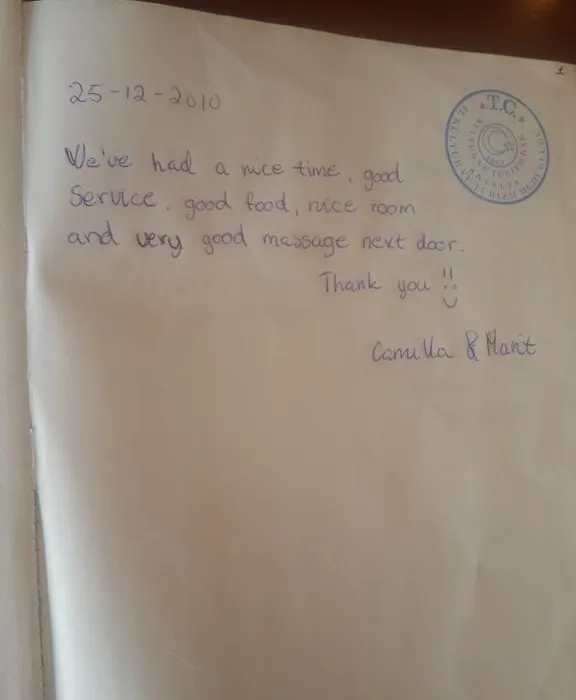 1
25-12-2010
T.C.
ANTALYA
We've had a nice time, good
Service, good food, nice room
and very good massage next door.
Thank you !!
Camilla & Marit